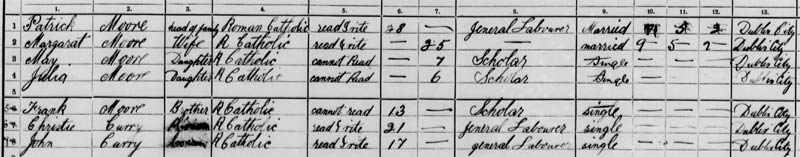 1. 2. 3. 4. 5. 6. 7. 8. 9. 10. 11. 12. 13.
1 Patrick Moore Head of family Roman Catholic read & write 28 — General Labourer Married 5 2 Dublin City
2 Margarat Moore Wife R Catholic read & write — 25 — married 9 5 2 Dublin City
3 May Moore Daughter R Catholic cannot Read — 7 Scholar Single Dublin City
4 Julia Moore Daughter R Catholic cannot Read — 6 Scholar Single Dublin City
5
Frank Moore Brother R Catholic cannot read 13 — Scholar single Dublin City
Christie Curry R Catholic read & write 21 — General Labourer single Dublin City
John Curry R Catholic read & write 17 — general Labourer single Dublin City